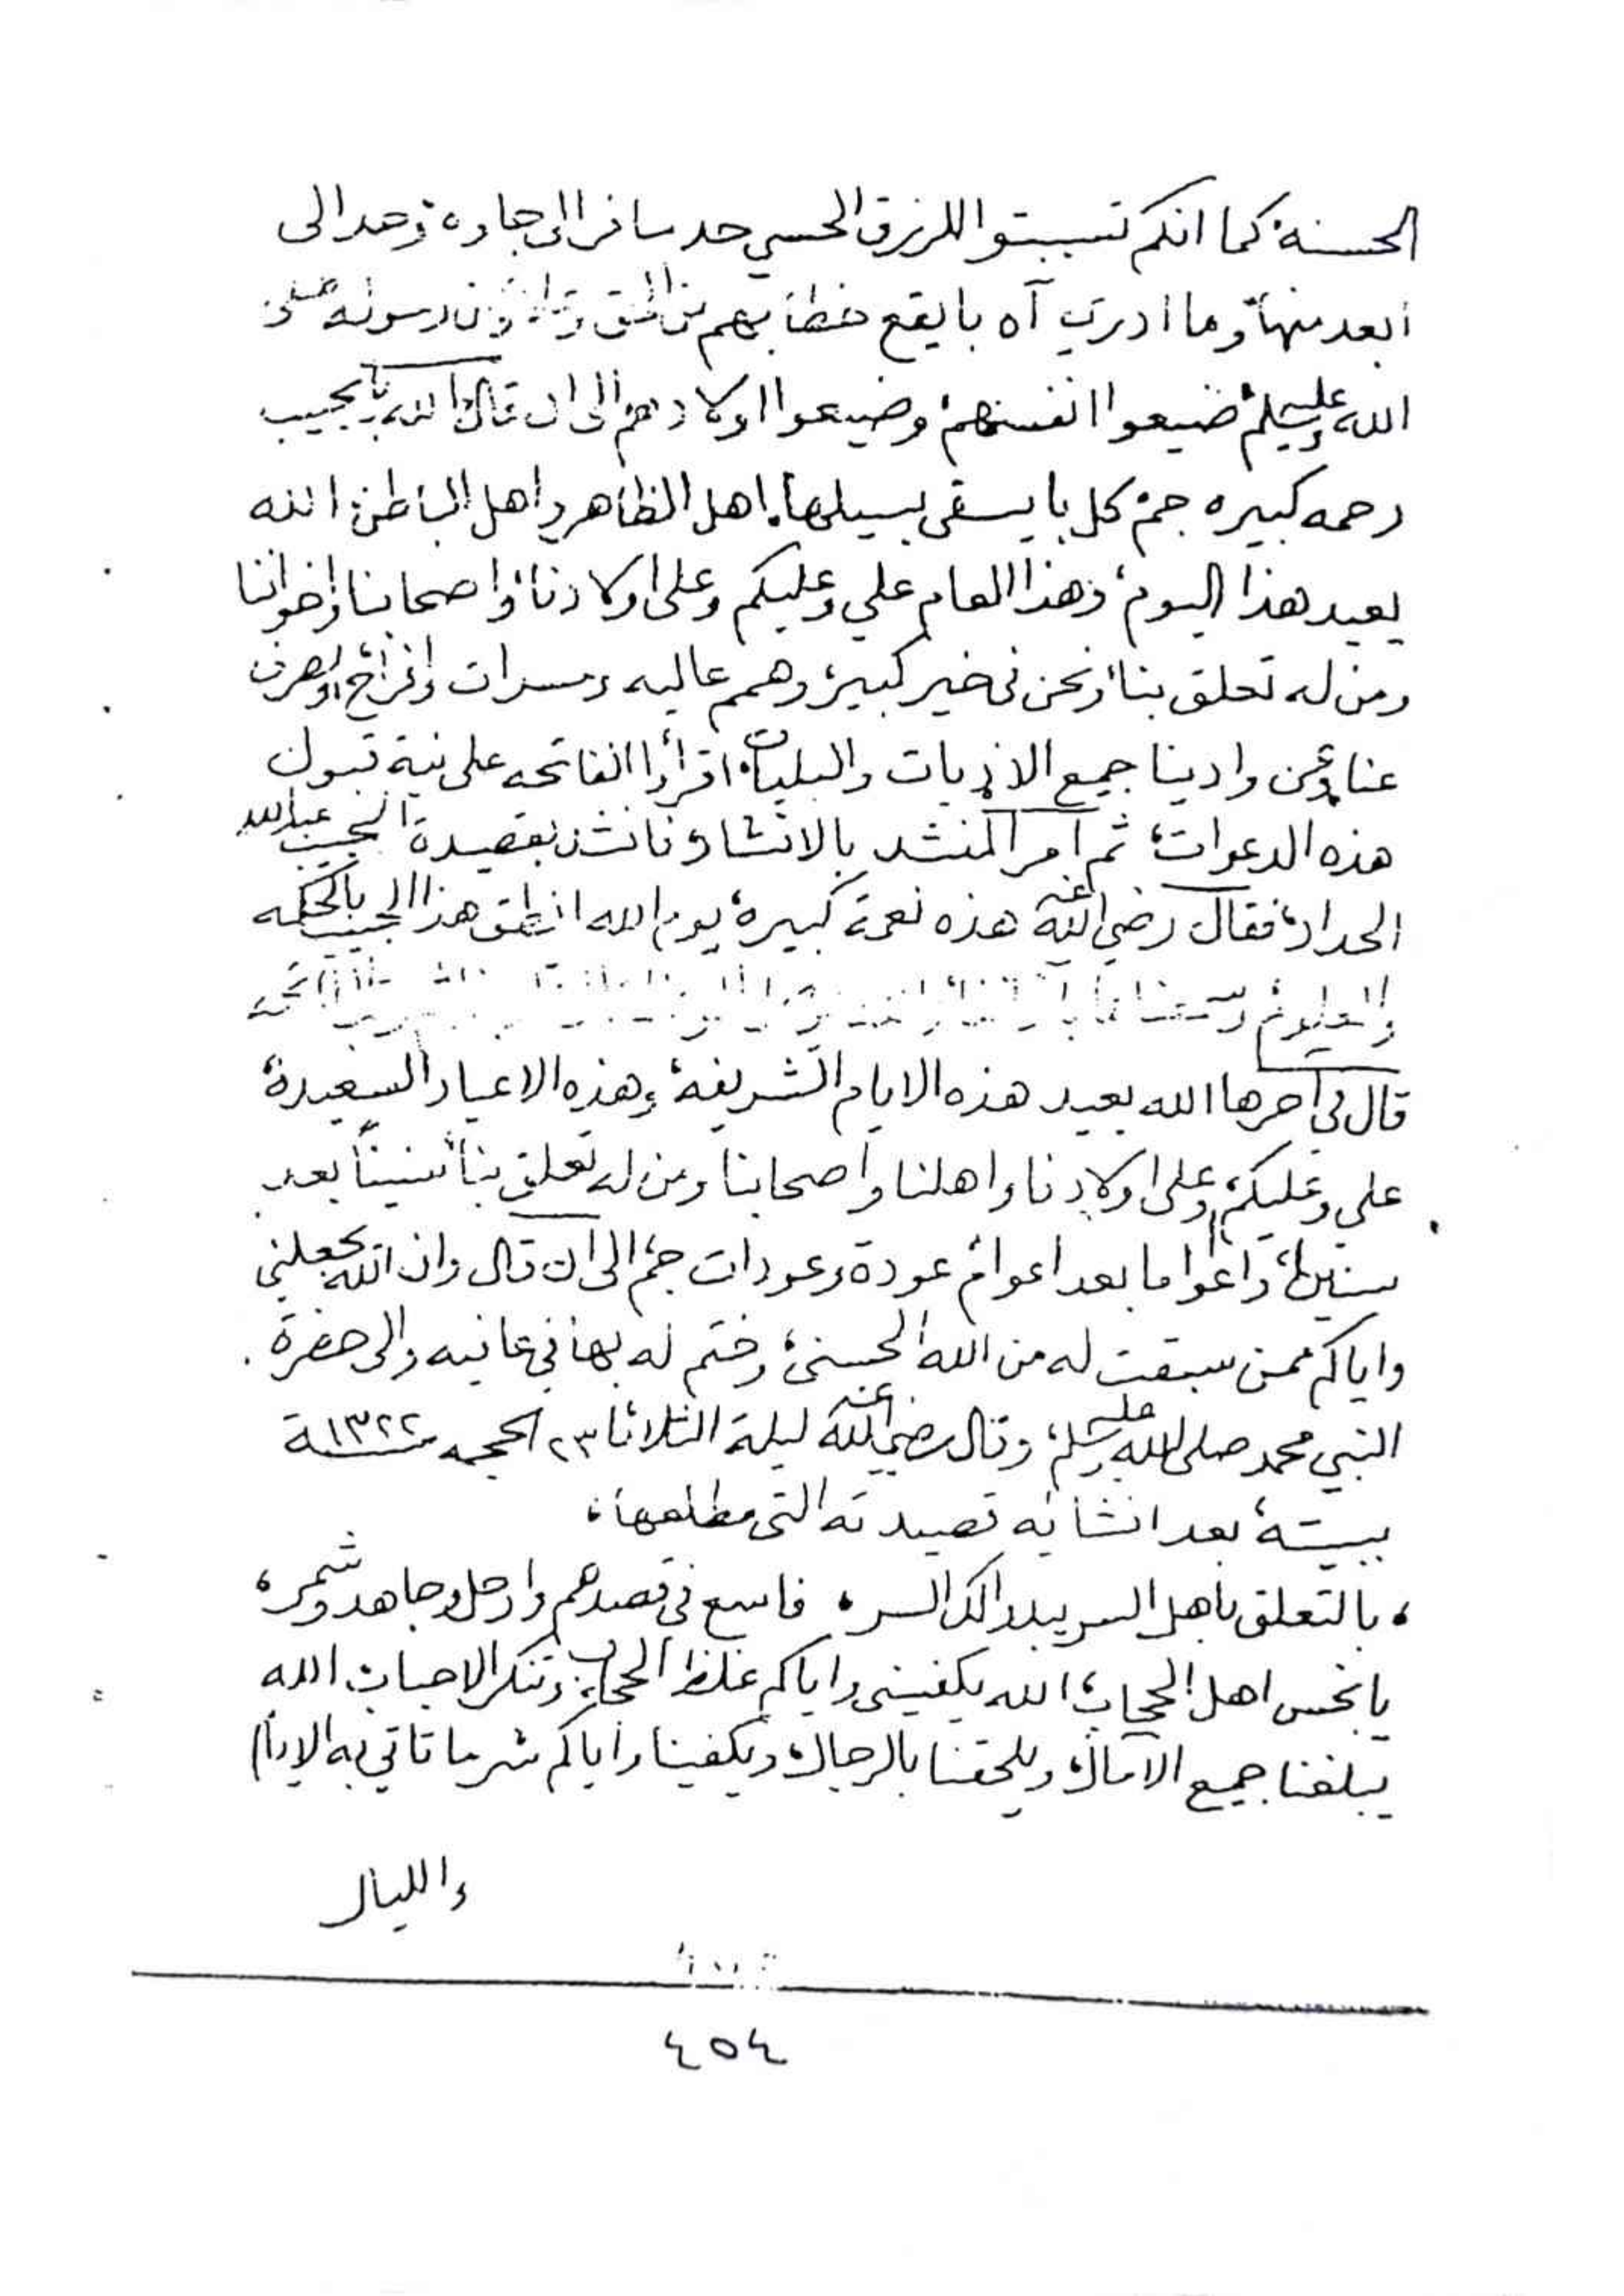 الحسنة، كما انكم تسببتوا للرزق الحسي حد سافر الى جاوه، وحد الى
ابعد منها، وما ادري آه با يقع خطابهم من الحق ومن رسوله صلى
الله عليه وسلم، ضيعوا انفسهم، وضيعوا اولادهم، الى ان قال الله يجيب
رحمه كبيره جم، كل با يسقى بسيلها، اهل الظاهر واهل الباطن، الله
يعيد هذا اليوم، وهذا العام علي وعليكم وعلى اولادنا، واصحابنا واخواننا
ومن له تعلق بنا، ونحن في خير كبير، وهمم عاليه ومسرات وافراح، ويصرف
عنا وعن وادينا جميع الاذيات والبليات، اقرأوا الفاتحه على نية قبول
هذه الدعوات، ثم أمر المنشد بالانشاد فانشد بقصيدة الحبيب عبدالله
الحداد، فقال رضي الله عنه هذه نعمة كبيرة، يوم الله انطق هذا الحبيب بالحكمه
والعلوم
قال في آخرها الله يعيد هذه الايام الشريفة، وهذه الاعياد السعيدة،
علي وعليكم، وعلى اولادنا واهلنا واصحابنا ومن له تعلق بنا سنينا بعد
سنين، واعواما بعد اعوام، عودة وعودات جم، الى ان قال وان الله يجعلني
واياكم ممن سبقت له من الله الحسنى، وختم له بها في عافيه والى حضرة
النبي محمد صلى الله عليه وسلم، وقال رضي الله عنه ليلة الثلاثا ٢٣ الحجه سنة ١٣٢٢
ببيته، بعد انشائه قصيدته التي مطلعها،
، بالتعلق باهل السر يبدالك السر ، فاسع في قصدهم وارحل وجاهد وشمر،
يا نحس اهل الحجاب، الله يكفيني واياكم غلظ الحجاب، وتنكر الاحباب، الله
يبلغنا جميع الآمال، ويلحقنا بالرجال، ويكفينا واياكم شر ما تاتي به الايام
والليال
٤٥٤